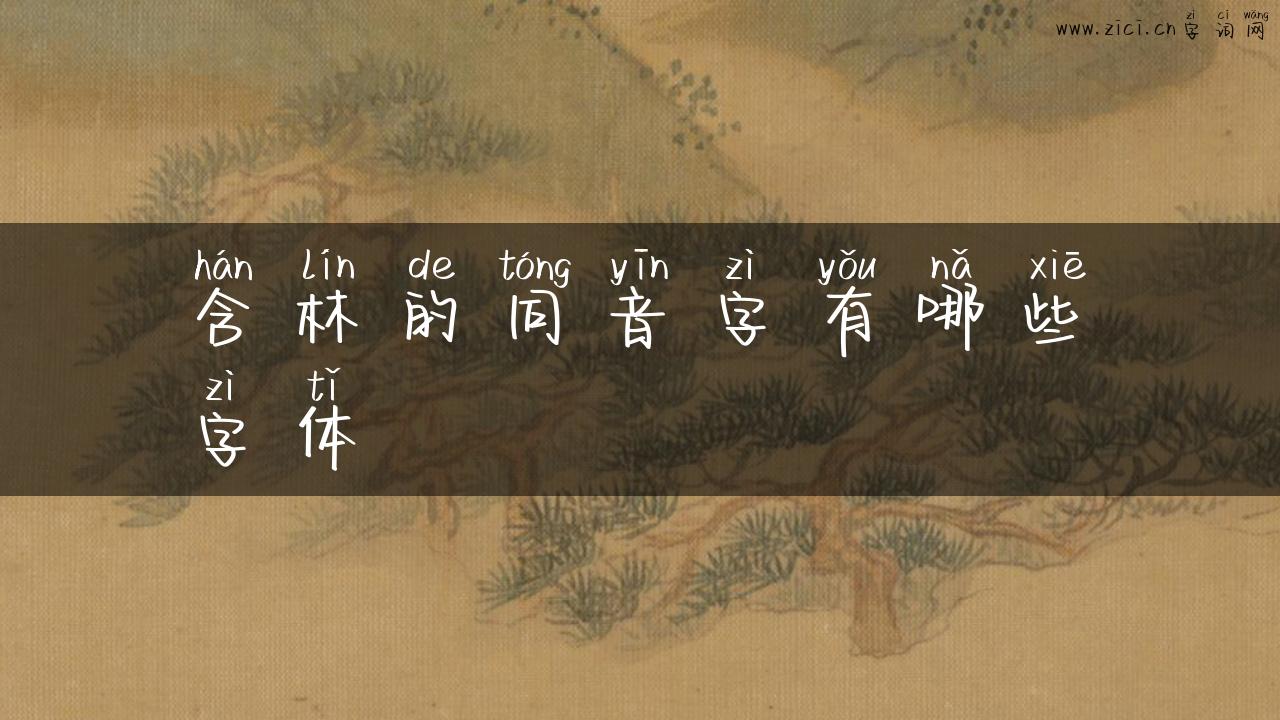 zì cí wǎng
www.zici.cn 字词网
hán lín de tóng yīn zì yǒu nǎ xiē
含林的同音字有哪些
zì tǐ
字体